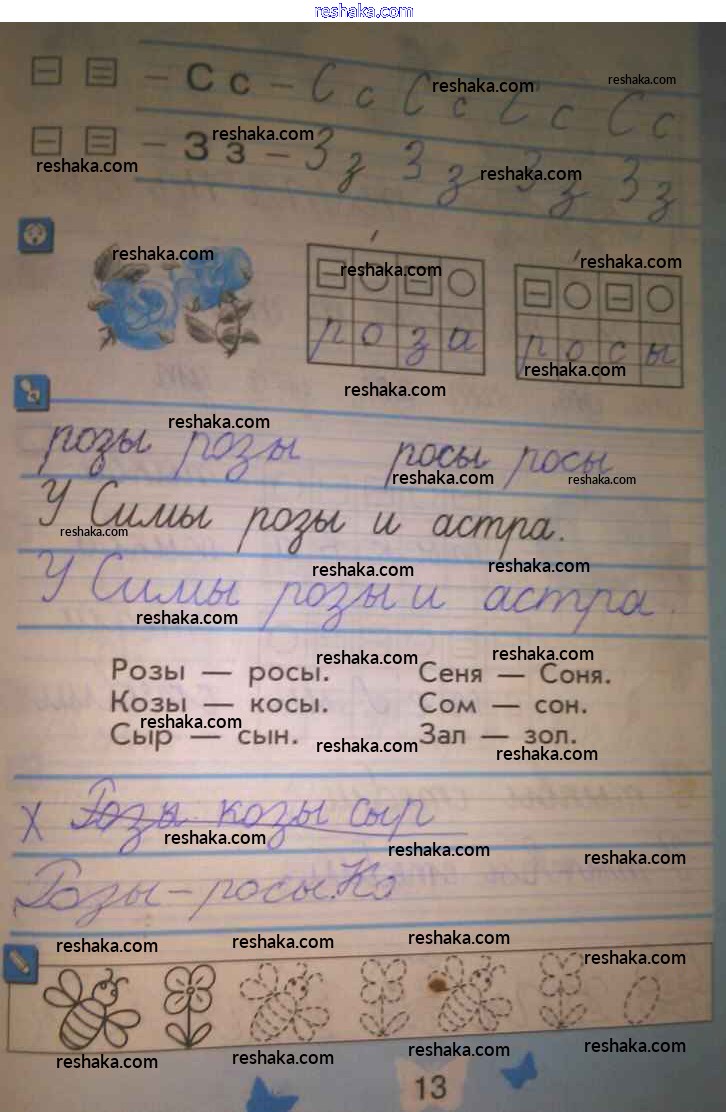 reshaka.com
– С с – С с С с С с С с
reshaka.com reshaka.com
– З з – З з З з З з З з
reshaka.com reshaka.com reshaka.com
reshaka.com reshaka.com reshaka.com
р о з а р о с ы
reshaka.com reshaka.com
розы розы росы росы
reshaka.com reshaka.com reshaka.com
У Симы розы и астра.
reshaka.com
У Симы розы и астра.
reshaka.com reshaka.com reshaka.com
Розы — росы. Сеня — Соня.
reshaka.com reshaka.com
Козы — косы. Сом — сон.
reshaka.com
Сыр — сын. Зал — зол.
reshaka.com reshaka.com
х Розы козы сыр
reshaka.com reshaka.com reshaka.com
Розы – росы. Ко
reshaka.com reshaka.com reshaka.com reshaka.com
reshaka.com reshaka.com reshaka.com reshaka.com
13